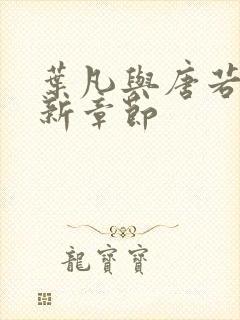 葉凡與唐若
新章節
龍寶寶